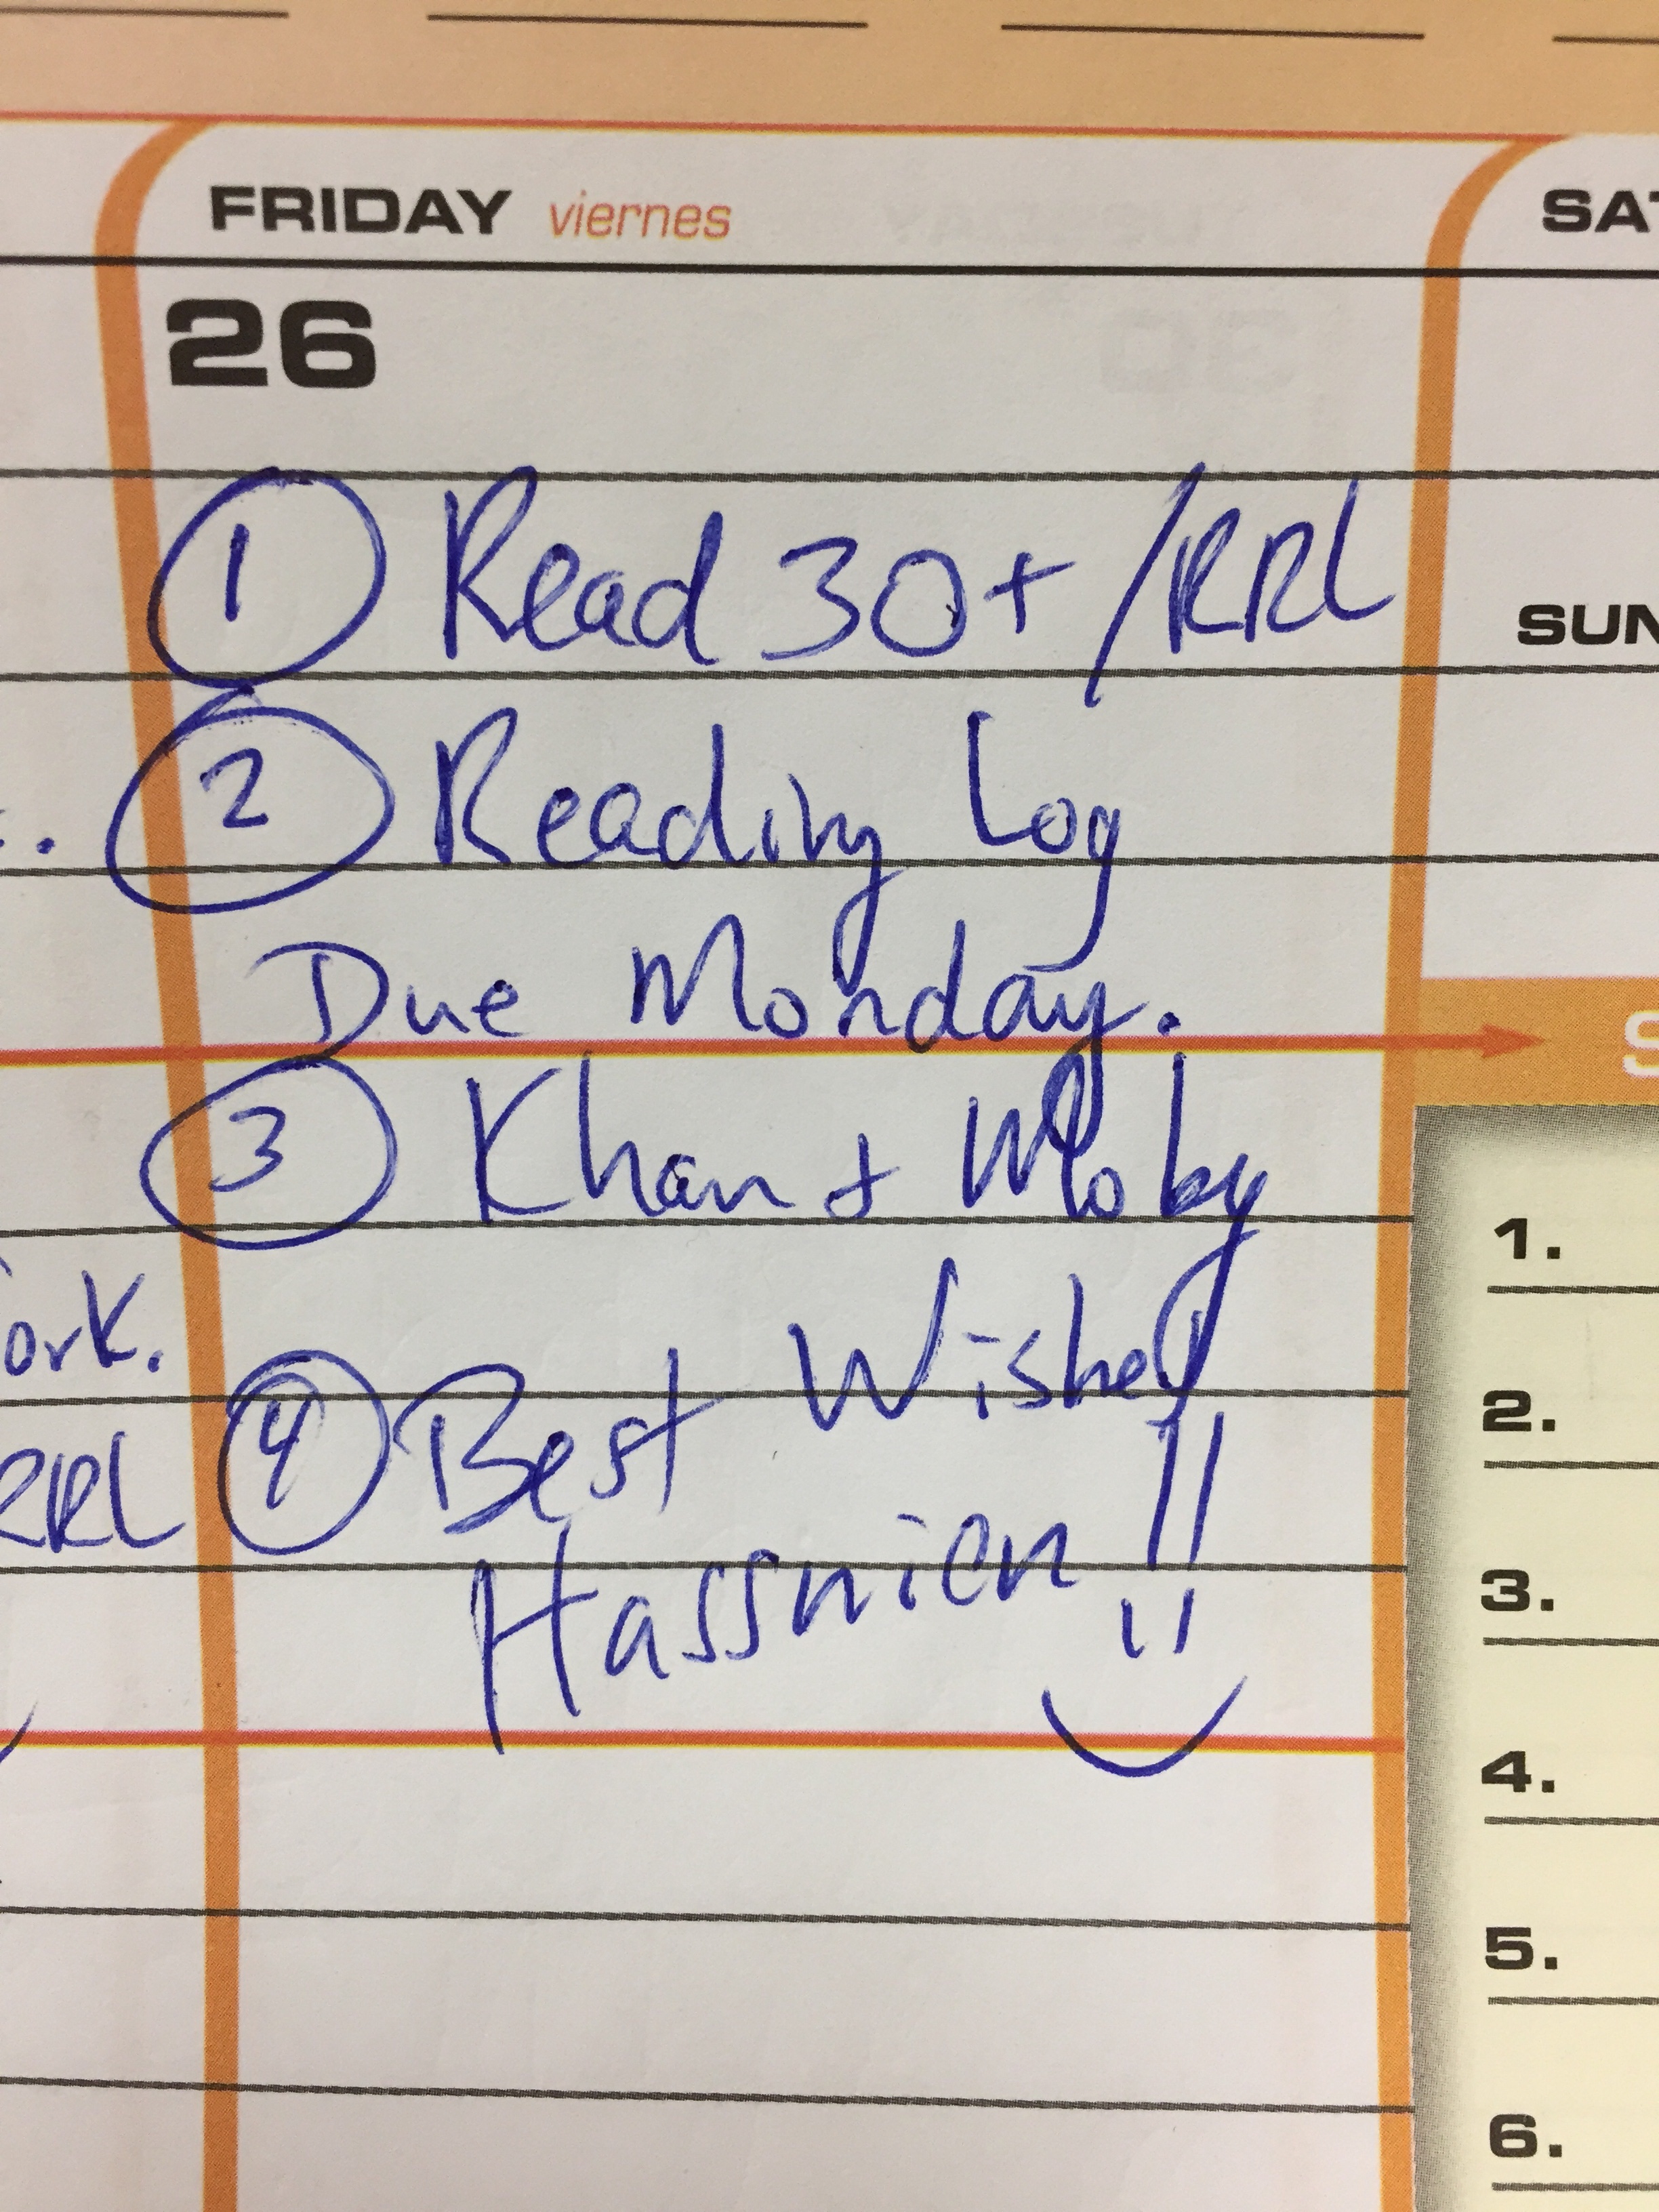 FRIDAY viernes
SAT
26
① Read 30+/RRL
SUN
② Reading Log
Due Monday.
③ Khan + Moby
1.
ork.
④ Best Wishes
2.
RRL
Hassnien!!
3.
4.
5.
6.